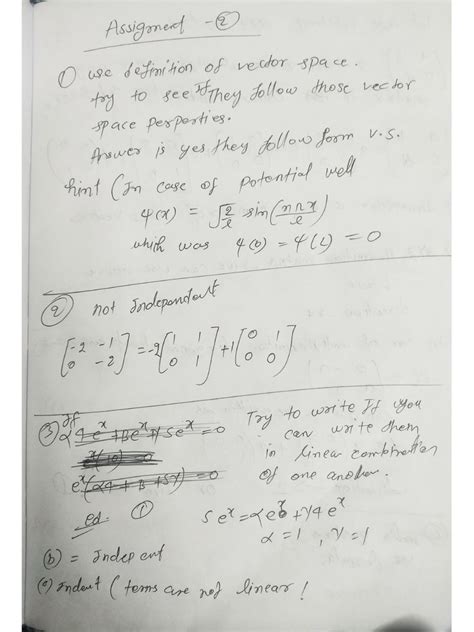 Assignment - 2
① use definition of vector space.
try to see if They follow those vector
space perporties.
Answer is yes they follow form v.s.
hint (In case of potential well
ψ(x) = √(2/l) sin(nπx/l)
which was ψ(0) = ψ(L) = 0
② not Independent
[-2 -1; 0 -2] = -2[1 1; 0 1] + 1[0 1; 0 0]
③ If
α4e^x + Be^x + γ5e^x = 0
e^x(α4 + B + 5γ) = 0
Try to write If you
can write them
in linear combination
of one another.
eq. ①
5e^x = αe^x + γ4e^x
α = 1, γ = 1
(b) =
(c) (terms are not linear!